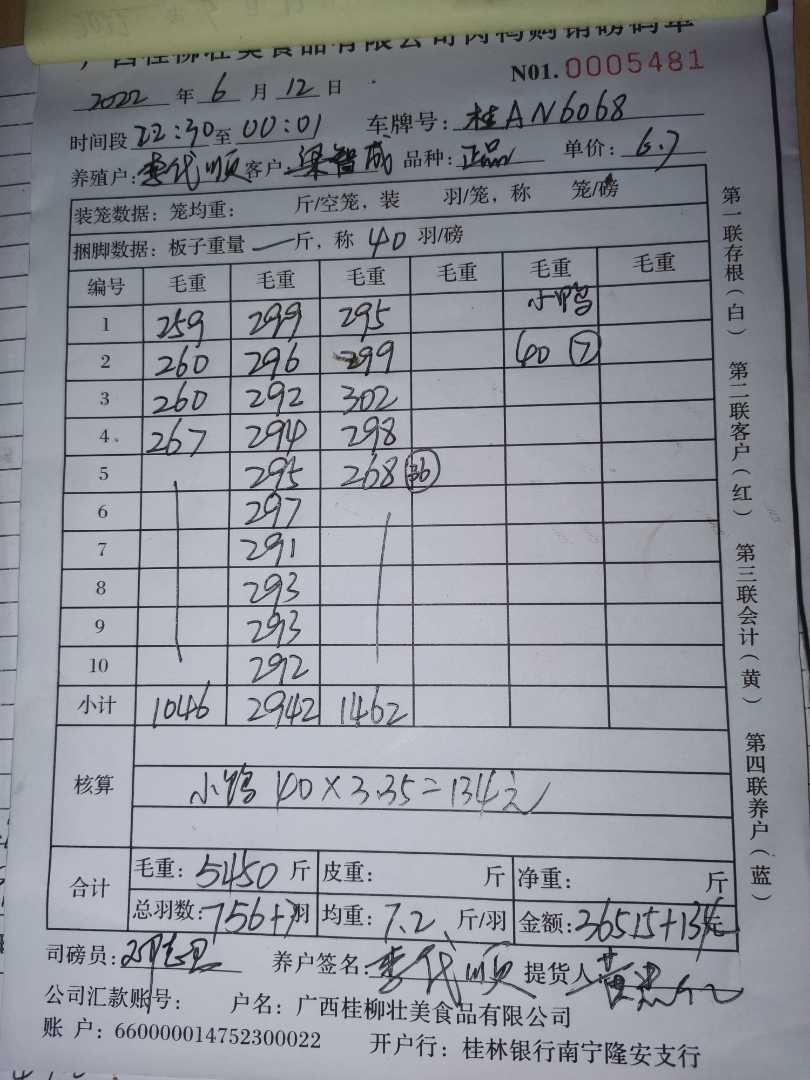 广西桂柳壮美食品有限公司肉鸭购销磅码单
N01. 0005481
2022 年 6 月 12 日
时间段 22:30 至 00:01 车牌号: 桂AN6068
养殖户: 李代顺 客户 梁智成 品种: 正品 单价: 6.7
装笼数据: 笼均重: 斤/空笼, 装 羽/笼, 称 笼/磅
捆脚数据: 板子重量 一 斤, 称 40 羽/磅
编号 毛重 毛重 毛重 毛重 毛重 毛重
1 259 299 295 小鸭
2 260 296 299 40 ⑦
3 260 292 302
4 267 294 298
5 295 268 (36)
6 297
7 291
8 293
9 293
10 292
小计 1046 2942 1462
核算
小鸭 40×3.35=134元
合计 毛重: 5450 斤 皮重: 斤 净重: 斤
总羽数: 756+7羽 均重: 7.2 斤/羽 金额: 36515+134元
司磅员:
养户签名: 李代顺 提货人:
公司汇款账号: 户名: 广西桂柳壮美食品有限公司
账 户: 660000014752300022 开户行: 桂林银行南宁隆安支行
第一联存根(白) 第二联客户(红) 第三联会计(黄) 第四联养户(蓝)